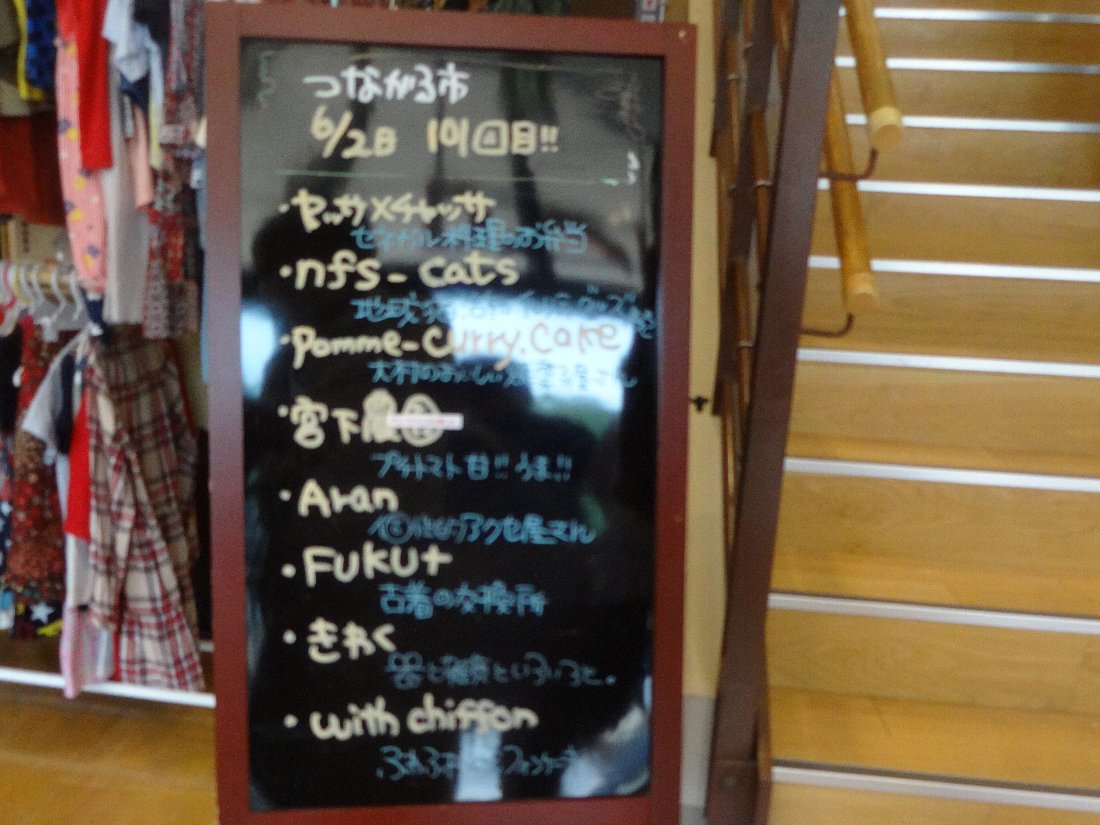 つながる市
6/2日 101回目!!
・セッサ×チャッサ
セネガル料理のお弁当
・nfs-cats
地球
・Pomme-curry.cake
大村のおいしい屋さん
・宮下農園
プチトマト甘!!うま!!
・Aran
個性的アクセ屋さん
・FUKU+
古着の交換所
・きれく
器と雑貨といろいろと。
・with chiffon